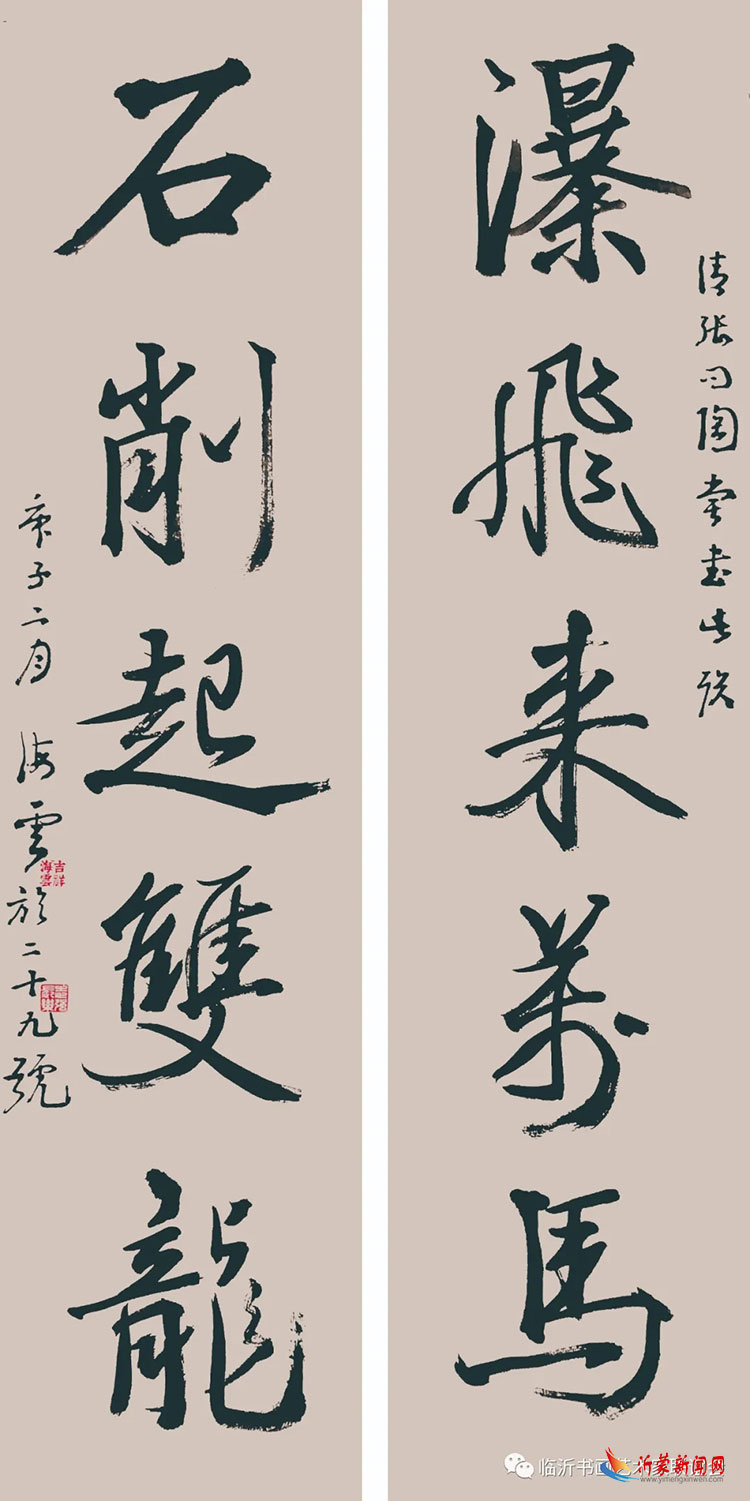 瀑飛来萬馬
清張問陶嘗書此聯
石削起雙龍
庚子二月 海雲於二十九號
吉祥
海雲
临沂书画艺术家
沂蒙新闻网
www.yimengxinwen.com